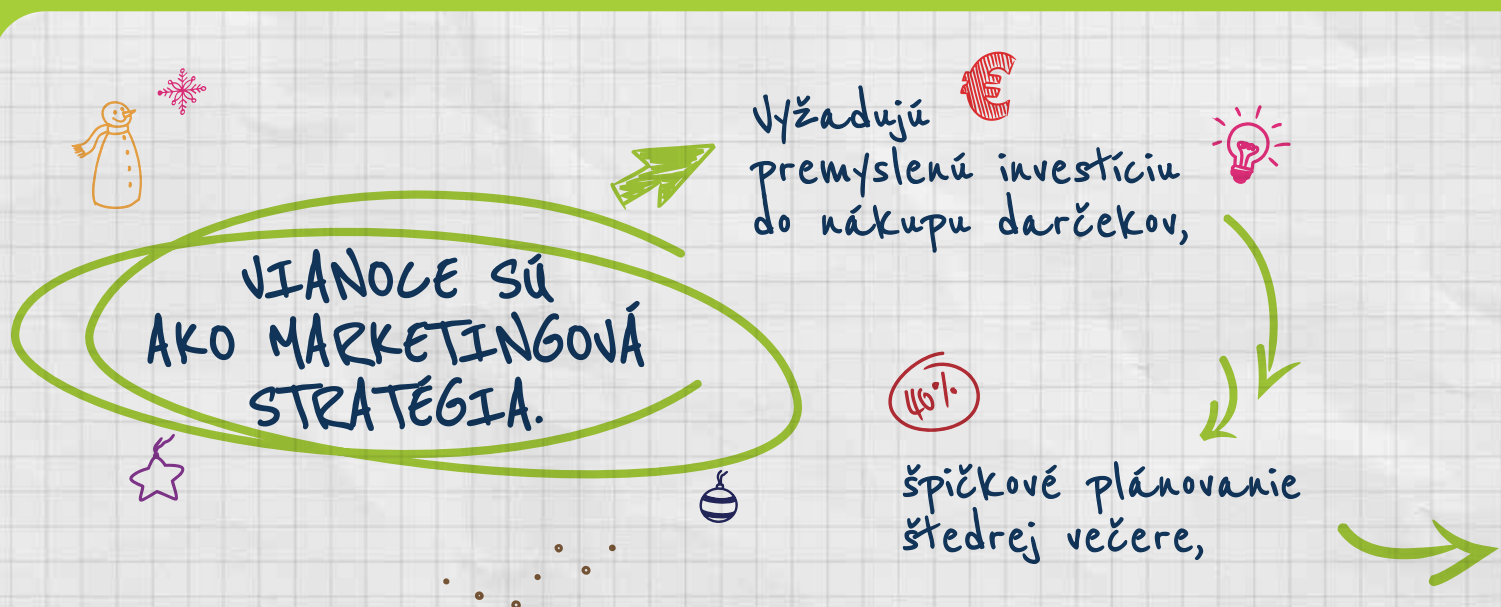 VIANOCE SÚ
AKO MARKETINGOVÁ
STRATÉGIA.
Vyžadujú €
premyslenú investíciu
do nákupu darčekov,
40%
špičkové plánovanie
štedrej večere,